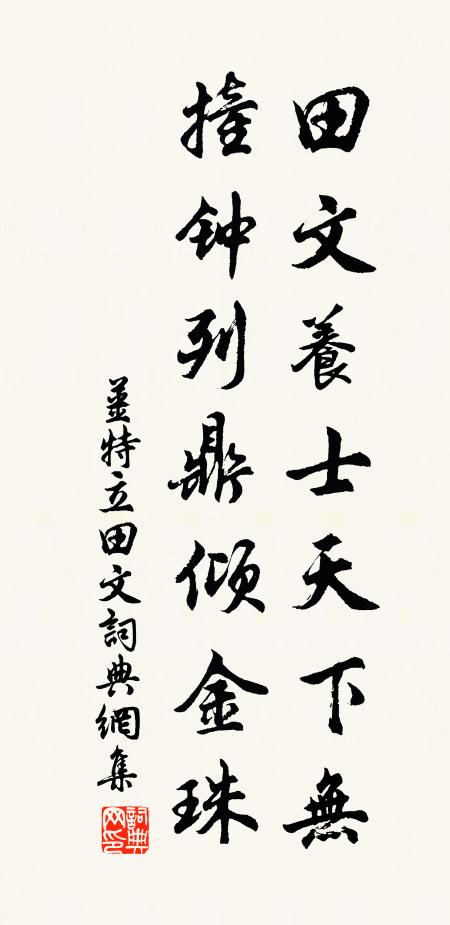 田文養士天下無
撞钟列鼎倾金珠
姜特立田文詞典網集
詞典网印